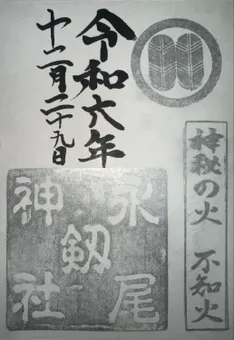 令和六年
十二月二十九日
神秘の火 不知火
永尾
剱
神社